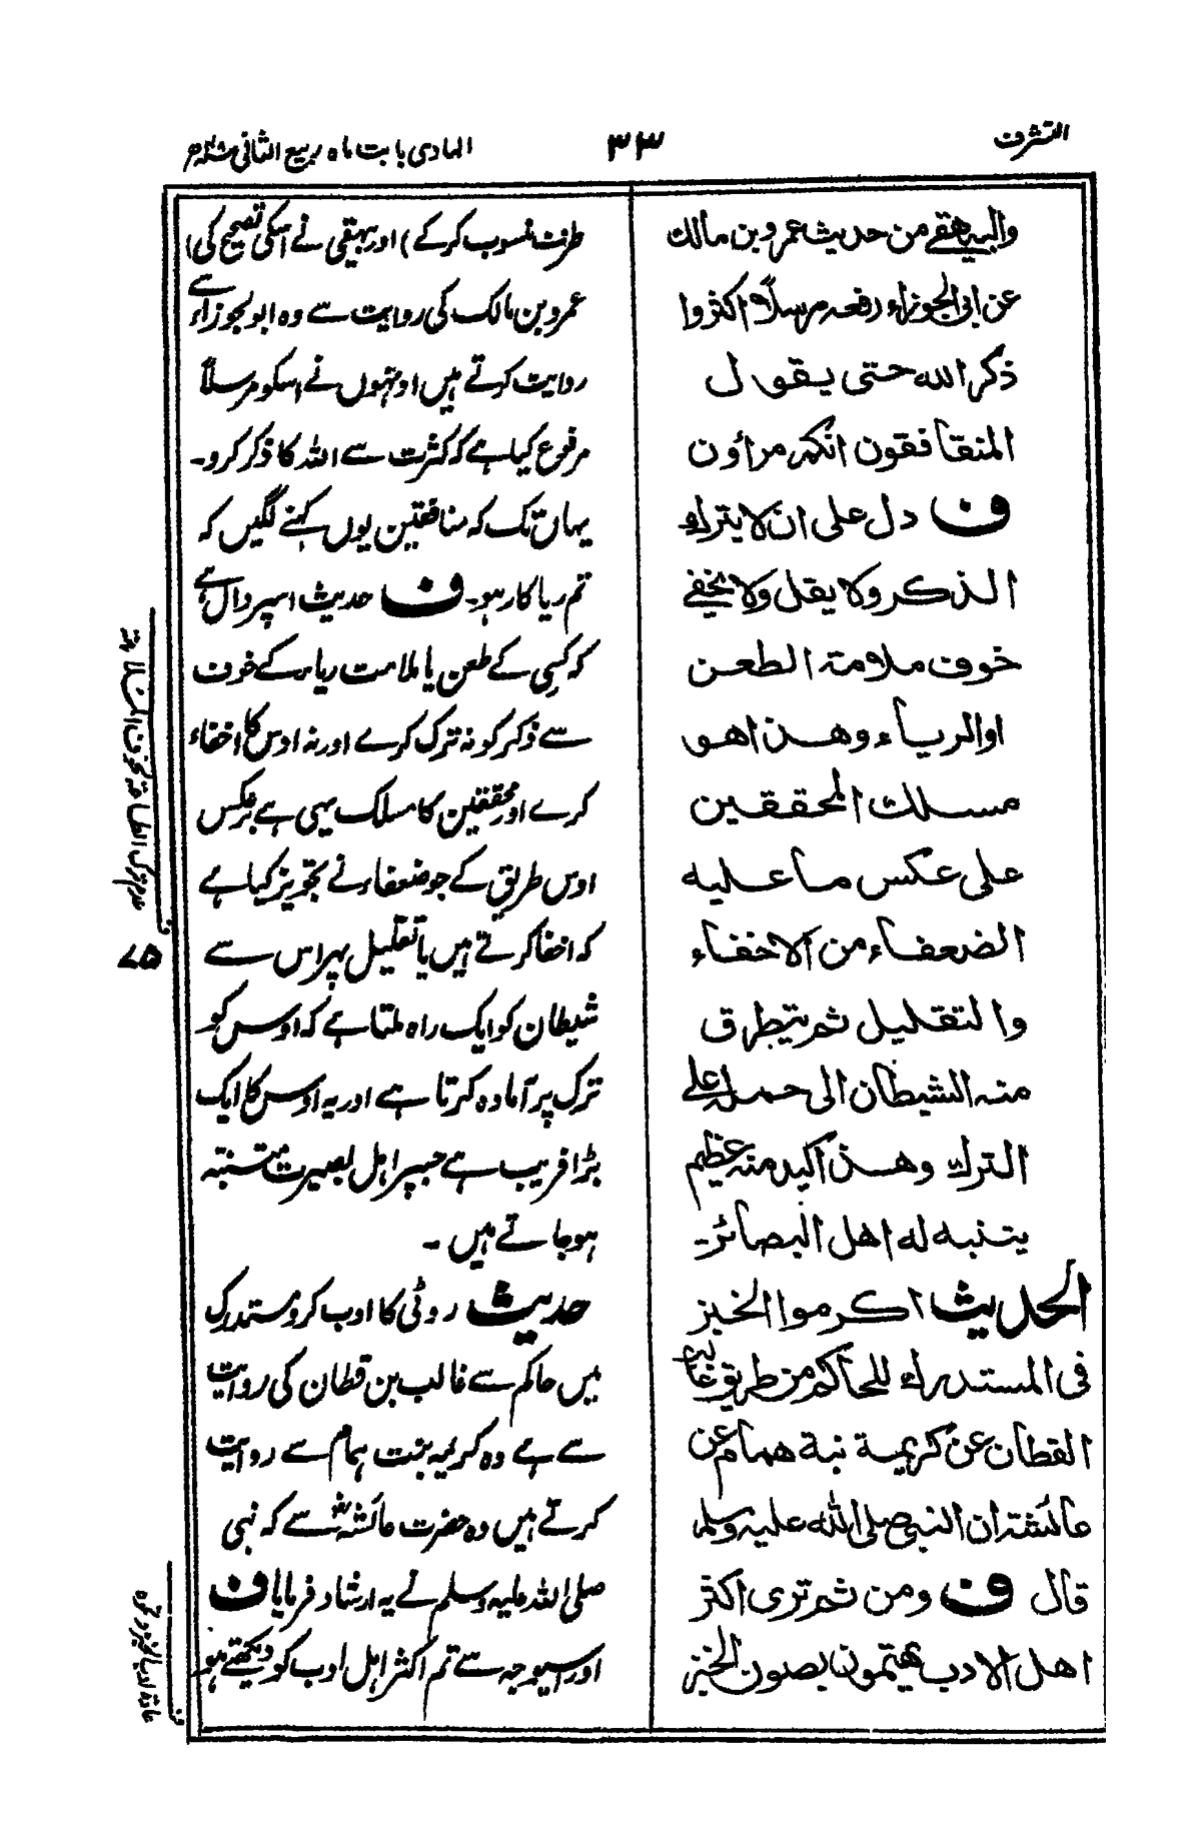 التشرف
۳۳
الہادی بابت ماہ ربیع الثانی
والبیھقے من حدیث عمرو بن مالك
عن ابی الجوزاء رفعہ مرسلاً اکثروا
ذکر اللہ حتی یقول
المنافقون انکم مراؤن
ف دل علی ان لا یترك
الذکر ولا یقل ولا یخفے
خوف ملامتہ الطعن
او الریاء وھذا ھو
مسلك المحققین
علی عکس ما علیہ
الضعفاء من الاخفاء
والتقلیل ثم یتطرق
منہ الشیطان الی حملہ علے
الترك وھذا کید منہ عظیم
یتنبہ لہ اھل البصائر۔
الحدیث اکرموا الخبز
فی المستدرك للحاکم من طریق غالب
القطان عن کریمۃ بنۃ ھمام عن
عائشۃ ان النبی صلی اللہ علیہ وسلم
قال ف ومن ثم تری اکثر
اھل الادب یھتمون بصون الخبز
طرف منسوب کرکے) اور بیہقی نے اسکی تصحیح کی)
عمرو بن مالک کی روایت سے وہ ابو الجوزاء سے
روایت کرتے ہیں اونہوں نے اسکو مرسلاً
مرفوع کیا ہے کہ کثرت سے اللہ کا ذکر کرو۔
یہاں تک کہ منافقین یوں کہنے لگیں کہ
تم ریاکار ہو۔ ف حدیث اسپر دال ہے
کہ کسی کے طعن یا ملامت ریاء کے خوف
سے ذکر کو نہ ترک کرے اور نہ اوس کا اخفاء
کرے اور محققین کا مسلک یہی ہے برعکس
اوس طریق کے جو ضعفاء نے تجویز کیا ہے
کہ اخفا کرتے ہیں یا تقلیل پہر اس سے
شیطان کو ایک راہ ملتا ہے کہ اوس کو
ترک پر آمادہ کرتا ہے اور یہ اوس کا ایک
بڑا فریب ہے جسپر اہل بصیرت متنبہ
ہوجاتے ہیں۔
حدیث روٹی کا ادب کرو مستدرک
میں حاکم سے غالب بن قطان کی روایت
سے ہے وہ کریمہ بنت ہمام سے روایت
کرتے ہیں وہ حضرت عائشہؓ سے کہ نبی
صلی اللہ علیہ وسلم نے یہ ارشاد فرمایا ف
اور اسیوجہ سے تم اکثر اہل ادب کو دیکھتے ہو
ف
۷۵
ف